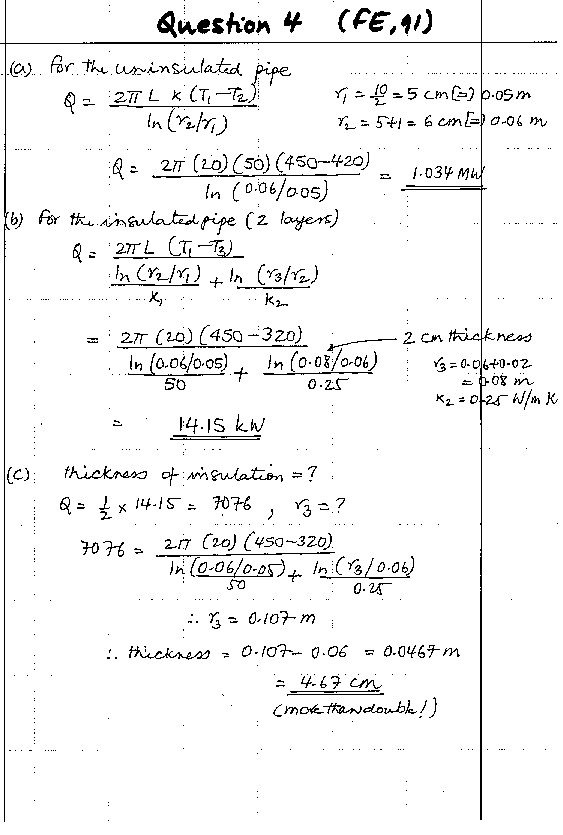 Question 4 (FE, 91)
(a) for the uninsulated pipe
Q = 2πL K (T1-T2) / ln(r2/r1)
r1 = 10/2 = 5 cm [=] 0.05 m
r2 = 5+1 = 6 cm [=] 0.06 m
Q = 2π (20) (50) (450-420) / ln (0.06/0.05) = 1.034 MW
(b) for the insulated pipe (2 layers)
Q = 2πL (T1-T3) / ln(r2/r1)/K1 + ln(r3/r2)/K2
= 2π (20) (450-320) / ln(0.06/0.05)/50 + ln(0.08/0.06)/0.25
2 cm thickness
r3=0.06+0.02
= 0.08 m
K2 = 0.25 W/m K
= 14.15 kW
(c) thickness of insulation = ?
Q = 1/2 x 14.15 = 7076 , r3 = ?
7076 = 2π (20) (450-320) / ln(0.06/0.05)/50 + ln(r3/0.06)/0.25
∴ r3 = 0.107 m
∴ thickness = 0.107- 0.06 = 0.0467 m
= 4.67 cm
(more than double!)